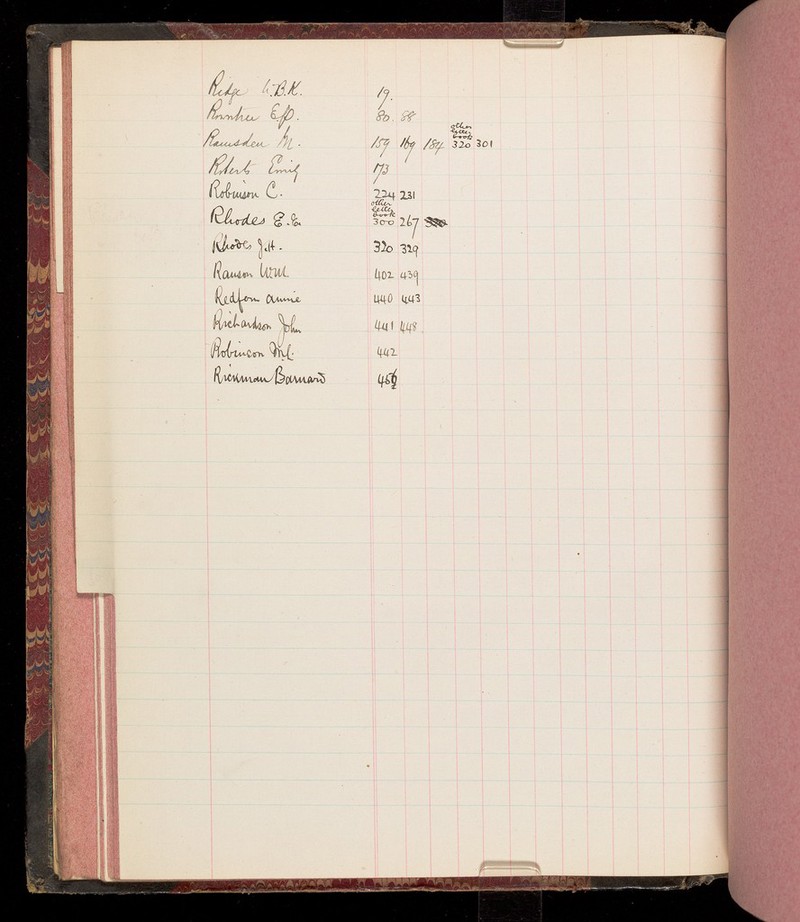 Ridge W.B.K. 19.
Rowntree E.P. 80. 88
other
letter
book
Ramsden M. 159 169 184 320 301
Roberts Emily 173
Robinson C. 224 231
other
letter
book
Rhodes E.E. 300 267
Rhodes J.H. 320 329
Ranson Wm. 402 439
Redfern Annie 440 443
Richardson John 441 448.
Robinson 442
Rickman Barnard